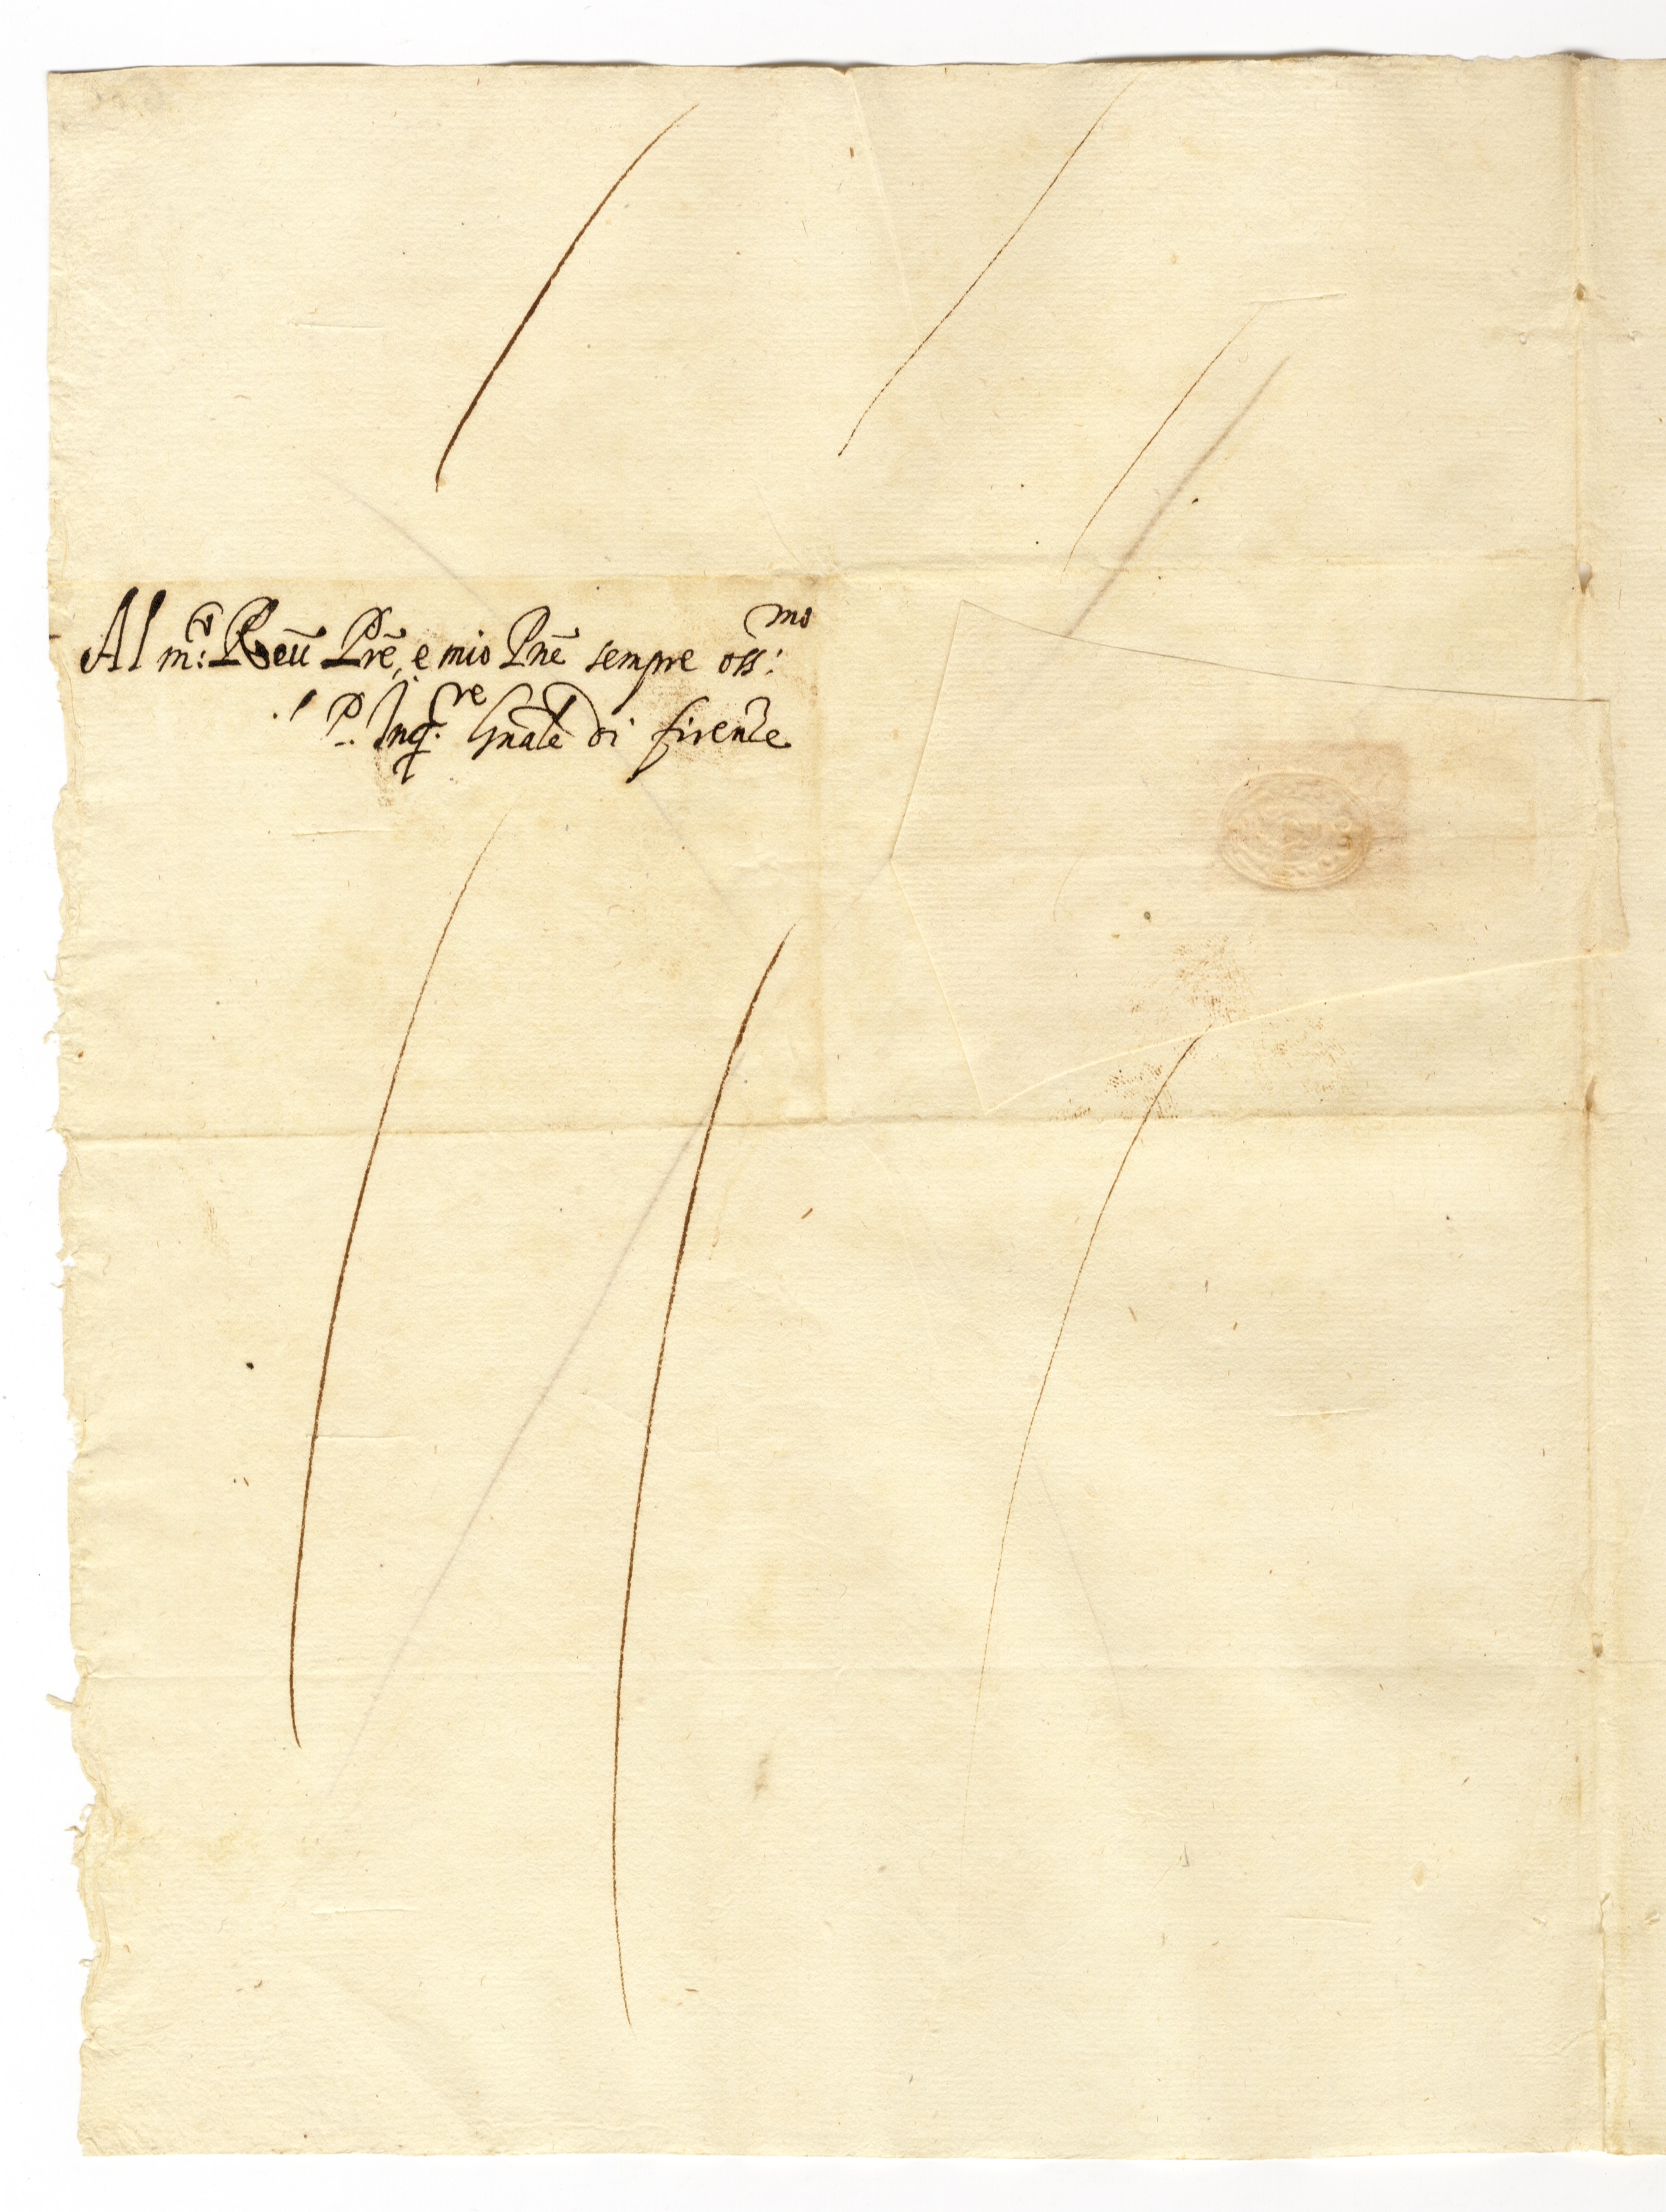 Al m:ᵗᵒ Reũ Prẽ, e mio Pnẽ sempre oss:ᵐᵒ
il P. Inq.ʳᵉ Gnãle di firenze